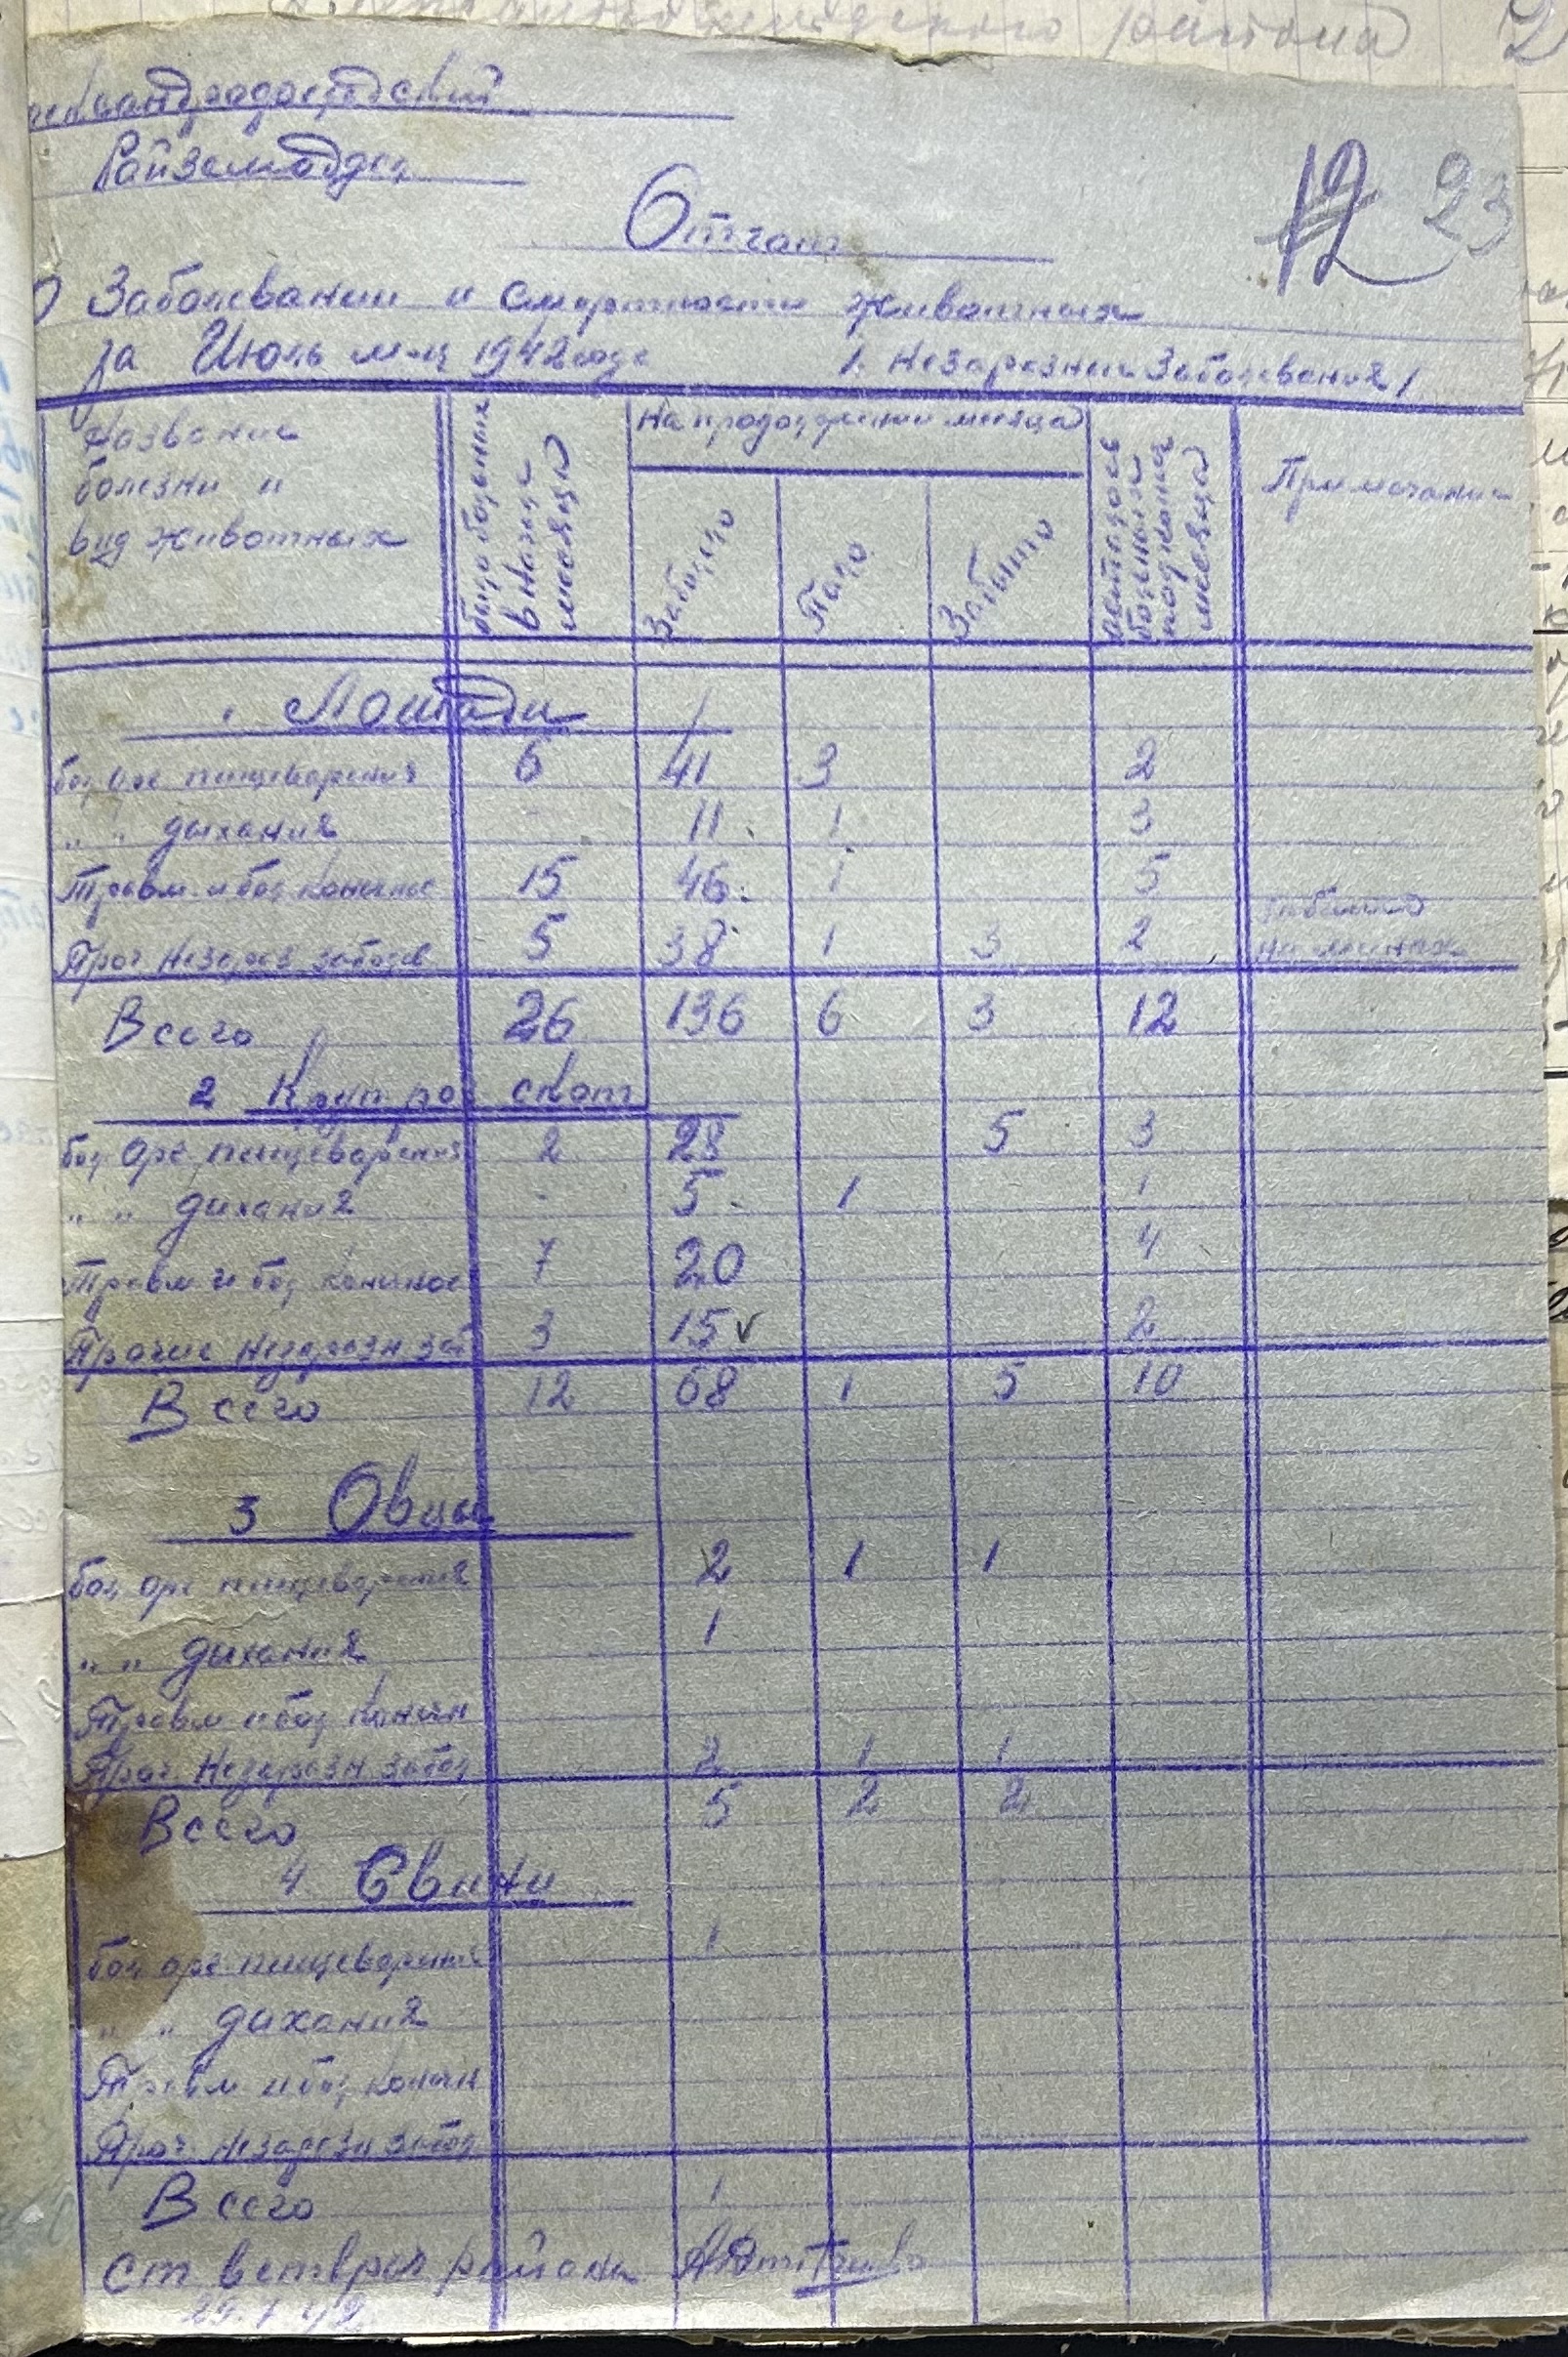 района 2
Райземотдел
12 23
Отчет
О Заболевании и смертности животных
за Июль м-ц 1942 года 1. Незаразные Заболевания /
Название болезни и вид животных
было больных в начале месяца
На продолжении месяца
Заболело
Пало
Забыто
осталось больных под конец месяца
Примечание
Лошади
бол орг пищеварения 6 41 3 2
" " дыхания - 11 1 3
Травм и бол конечнос 15 46 1 5
Проч Незараз заболев 5 38 1 3 2
Всего 26 136 6 3 12
2 Круп рог скот
бол орг пищеварения 2 28 5 3
" " дихания - 5 1 1
Травм и бол конечнос 7 20 4
Прочие Незаразн заб 3 15 v 2
Всего 12 68 1 5 10
3 Овцы
бол орг пищеварения 2 1 1
" " дыхания 1
Травм и бол конечн
Проч. Незаразн забол 2 1 1
Всего 5 2 2
4 Свини
бол орг пищеварения 1
" " дихания
Травм и бол конечн
Проч. Незаразн забол
Всего 1
Ст ветврач района